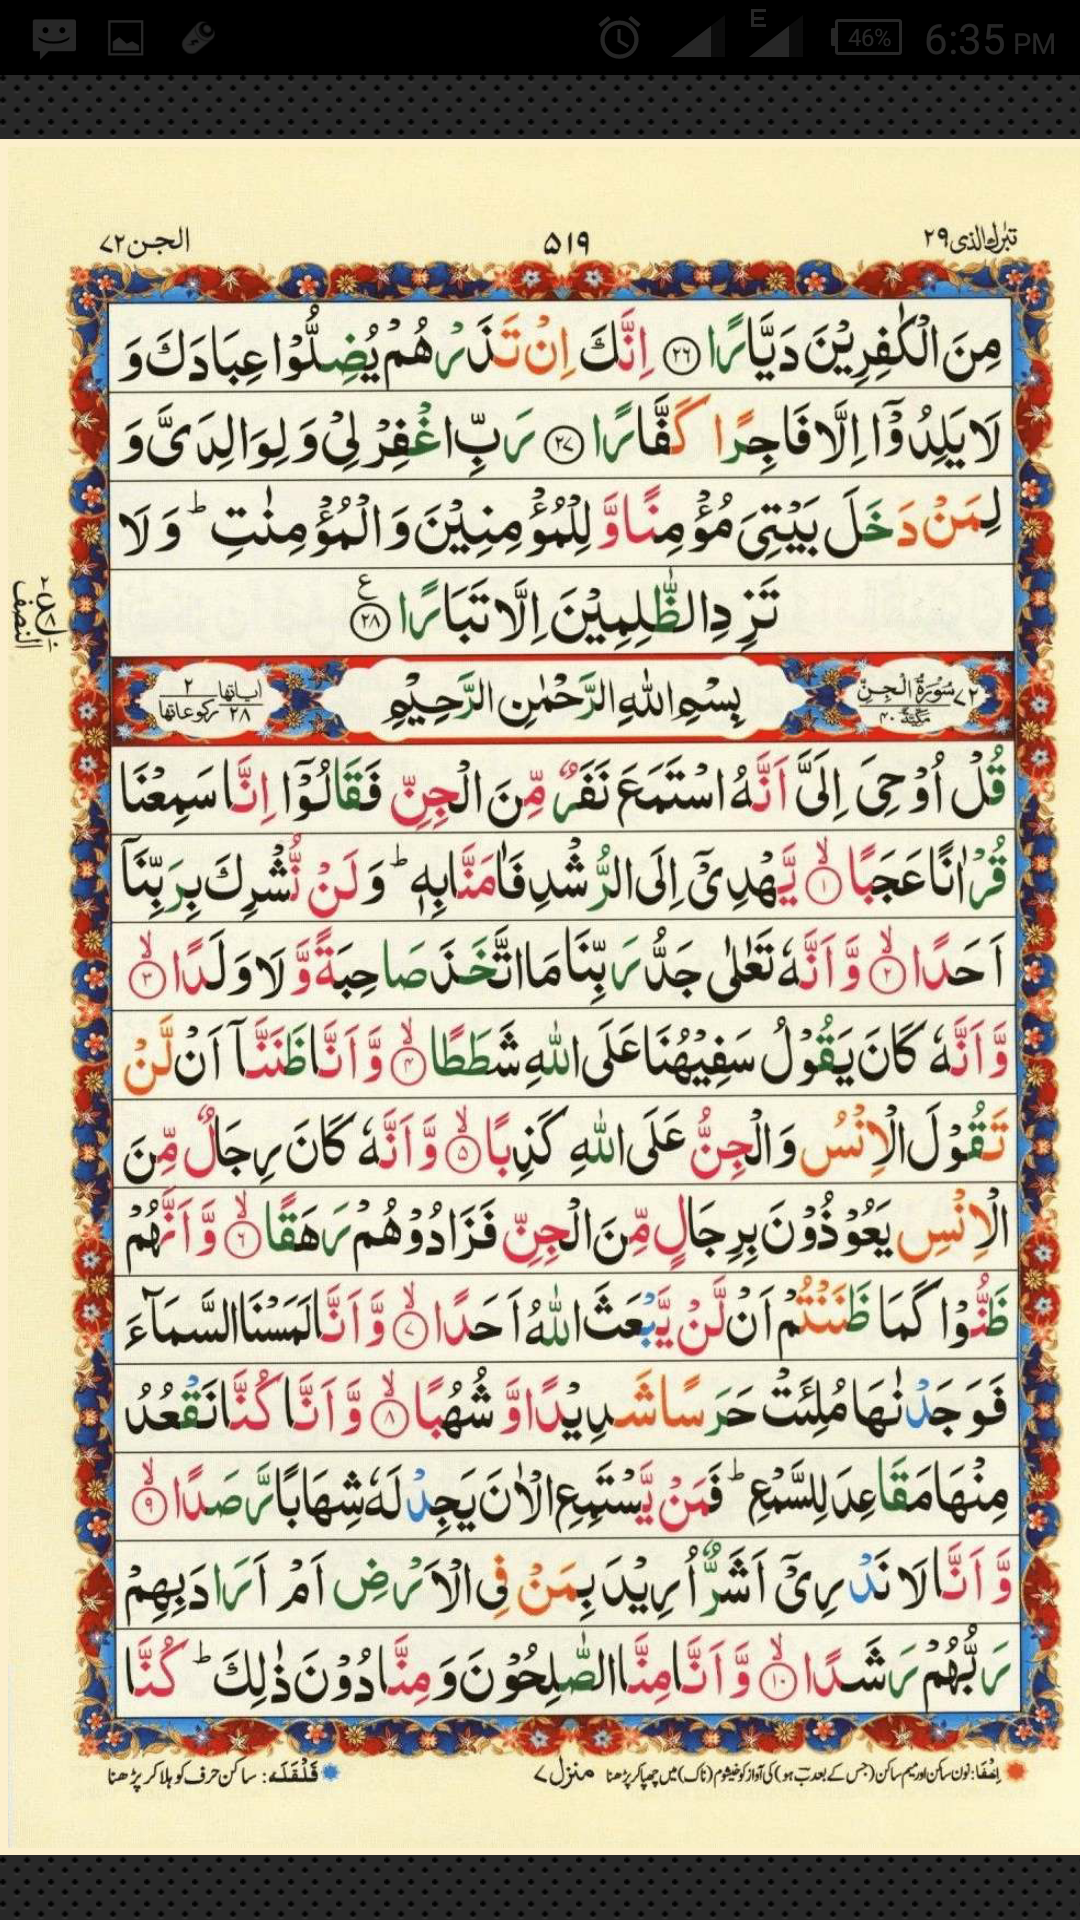 46% 6:35 PM
E
تبٰرك الذی ۲۹
۵۱۹
الجن ۷۲
مِنَ الْكٰفِرِیْنَ دَیَّارًا ﴿۲۶﴾ اِنَّكَ اِنْ تَذَرْهُمْ یُضِلُّوْا عِبَادَكَ وَ
لَا یَلِدُوْۤا اِلَّا فَاجِرًا كَفَّارًا ﴿۲۷﴾ رَبِّ اغْفِرْ لِیْ وَ لِوَالِدَیَّ وَ
لِمَنْ دَخَلَ بَیْتِیَ مُؤْمِنًا وَّ لِلْمُؤْمِنِیْنَ وَ الْمُؤْمِنٰتِ ؕ وَ لَا
تَزِدِ الظّٰلِمِیْنَ اِلَّا تَبَارًا ﴿۲۸﴾ ع
النصف
۷۲ سُوْرَةُ الْجِنِّ مَكِّیَّةٌ ۴۰
بِسْمِ اللّٰهِ الرَّحْمٰنِ الرَّحِیْمِ
اٰیاتها ۲۸ ركوعاتها ۲
قُلْ اُوْحِیَ اِلَیَّ اَنَّهُ اسْتَمَعَ نَفَرٌ مِّنَ الْجِنِّ فَقَالُوْۤا اِنَّا سَمِعْنَا
قُرْاٰنًا عَجَبًا ۙ﴿۱﴾ یَّهْدِیْۤ اِلَی الرُّشْدِ فَاٰمَنَّا بِهٖ ؕ وَ لَنْ نُّشْرِكَ بِرَبِّنَاۤ
اَحَدًا ۙ﴿۲﴾ وَّ اَنَّهٗ تَعٰلٰی جَدُّ رَبِّنَا مَا اتَّخَذَ صَاحِبَةً وَّ لَا وَلَدًا ۙ﴿۳﴾
وَّ اَنَّهٗ كَانَ یَقُوْلُ سَفِیْهُنَا عَلَی اللّٰهِ شَطَطًا ۙ﴿۴﴾ وَّ اَنَّا ظَنَنَّاۤ اَنْ لَّنْ
تَقُوْلَ الْاِنْسُ وَ الْجِنُّ عَلَی اللّٰهِ كَذِبًا ۙ﴿۵﴾ وَّ اَنَّهٗ كَانَ رِجَالٌ مِّنَ
الْاِنْسِ یَعُوْذُوْنَ بِرِجَالٍ مِّنَ الْجِنِّ فَزَادُوْهُمْ رَهَقًا ۙ﴿۶﴾ وَّ اَنَّهُمْ
ظَنُّوْا كَمَا ظَنَنْتُمْ اَنْ لَّنْ یَّبْعَثَ اللّٰهُ اَحَدًا ۙ﴿۷﴾ وَّ اَنَّا لَمَسْنَا السَّمَآءَ
فَوَجَدْنٰهَا مُلِئَتْ حَرَسًا شَدِیْدًا وَّ شُهُبًا ۙ﴿۸﴾ وَّ اَنَّا كُنَّا نَقْعُدُ
مِنْهَا مَقَاعِدَ لِلسَّمْعِ ؕ فَمَنْ یَّسْتَمِعِ الْاٰنَ یَجِدْ لَهٗ شِهَابًا رَّصَدًا ۙ﴿۹﴾
وَّ اَنَّا لَا نَدْرِیْۤ اَشَرٌّ اُرِیْدَ بِمَنْ فِی الْاَرْضِ اَمْ اَرَادَ بِهِمْ
رَبُّهُمْ رَشَدًا ۙ﴿۱۰﴾ وَّ اَنَّا مِنَّا الصّٰلِحُوْنَ وَ مِنَّا دُوْنَ ذٰلِكَ ؕ كُنَّا
اِخفَا: نون ساکن اور میم ساکن (جس کے بعد ب ہو) کی آواز کو خیشوم (ناک) میں چھپا کر پڑھنا
منزل ۷
قَلْقَلَه: ساکن حرف کو ہلا کر پڑھنا